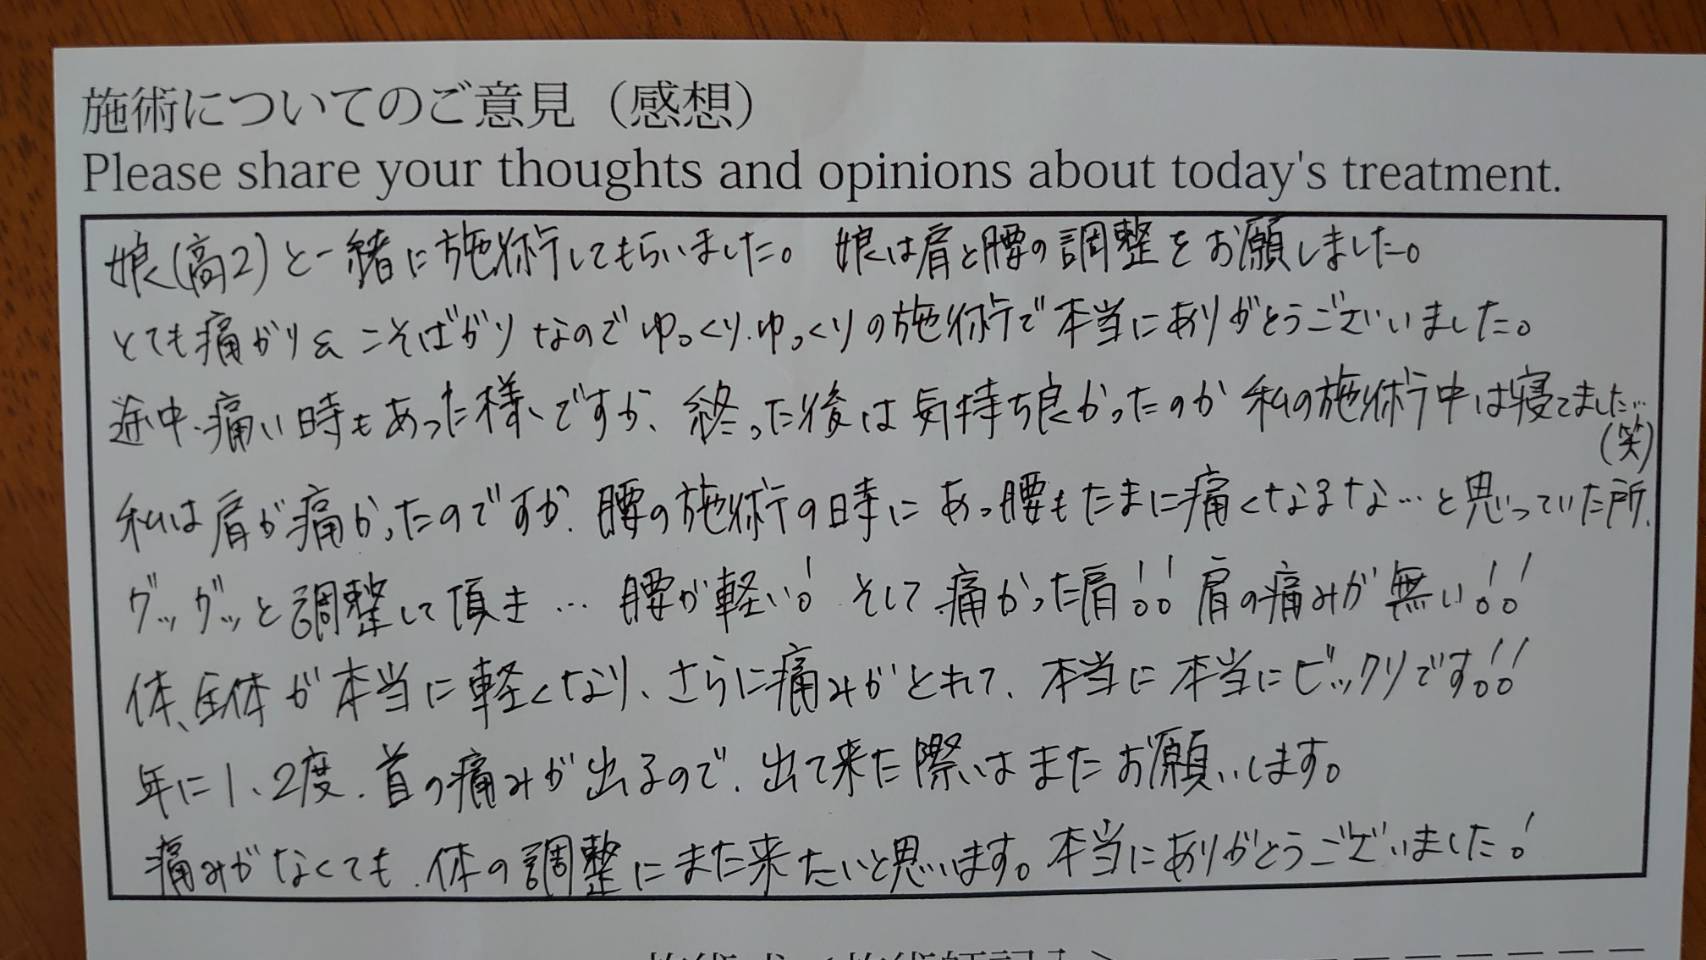 施術についてのご意見（感想）
Please share your thoughts and opinions about today's treatment.
娘(高2)と一緒に施術してもらいました。娘は肩と腰の調整をお願しました。
とても痛がり&こそばがりなのでゆっくり、ゆっくりの施術で本当にありがとうございました。
途中、痛い時もあった様ですが、終った後は気持ち良かったのか私の施術中は寝てました…
(笑)
私は肩が痛かったのですが、腰の施術の時にあっ腰もたまに痛くなるなな…と思っていた所、
グッグッと調整して頂き…腰が軽い!そして痛かった肩!!肩の痛みが無い!!
体、全体が本当に軽くなり、さらに痛みがとれて、本当に本当にビックリです!!
年に1、2度、首の痛みが出るので、出て来た際はまたお願いします。
痛みがなくても、体の調整にまた来たいと思います。本当にありがとうございました!